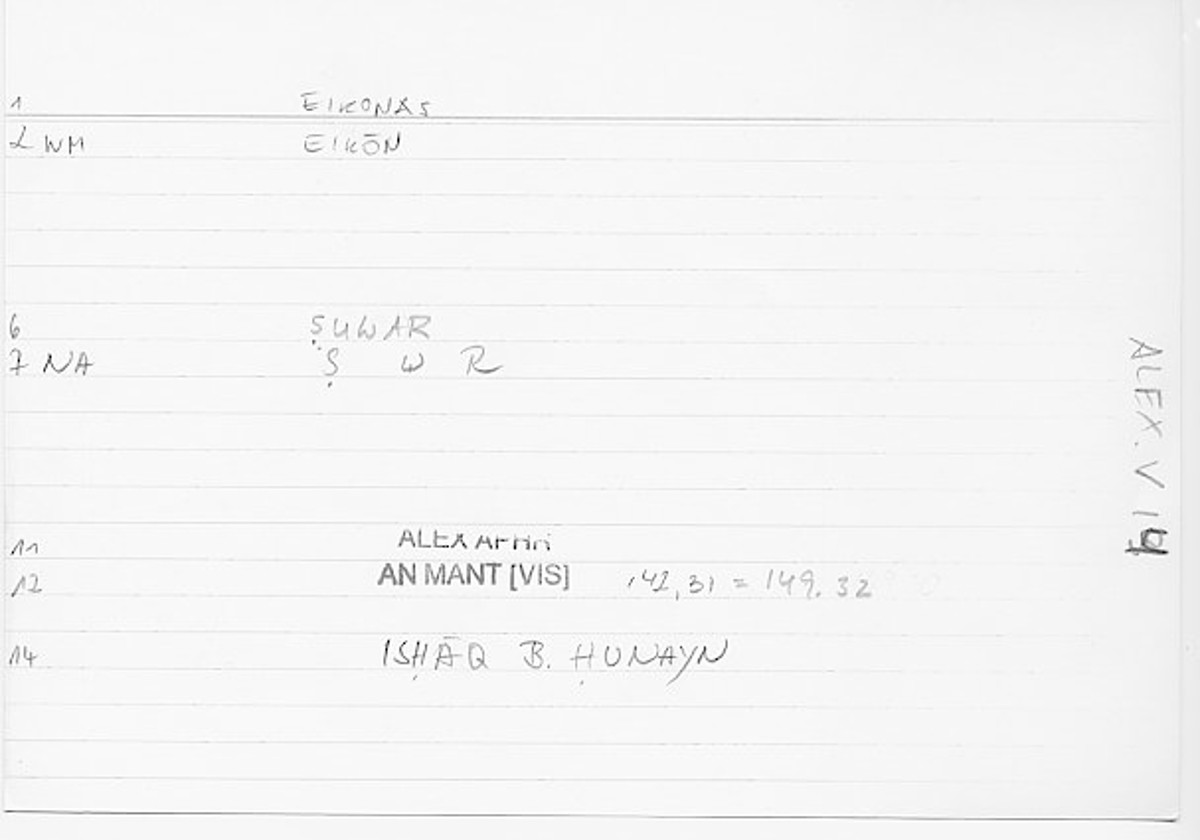 1 EIKONAS
2 WM EIKŌN
6 ṢUWAR
7 NA Ṣ W R
11 ALEX APHR
12 AN MANT [VIS] 142,31 = 149.32
14 ISḤĀQ B. ḤUNAYN
ALEX. V 19